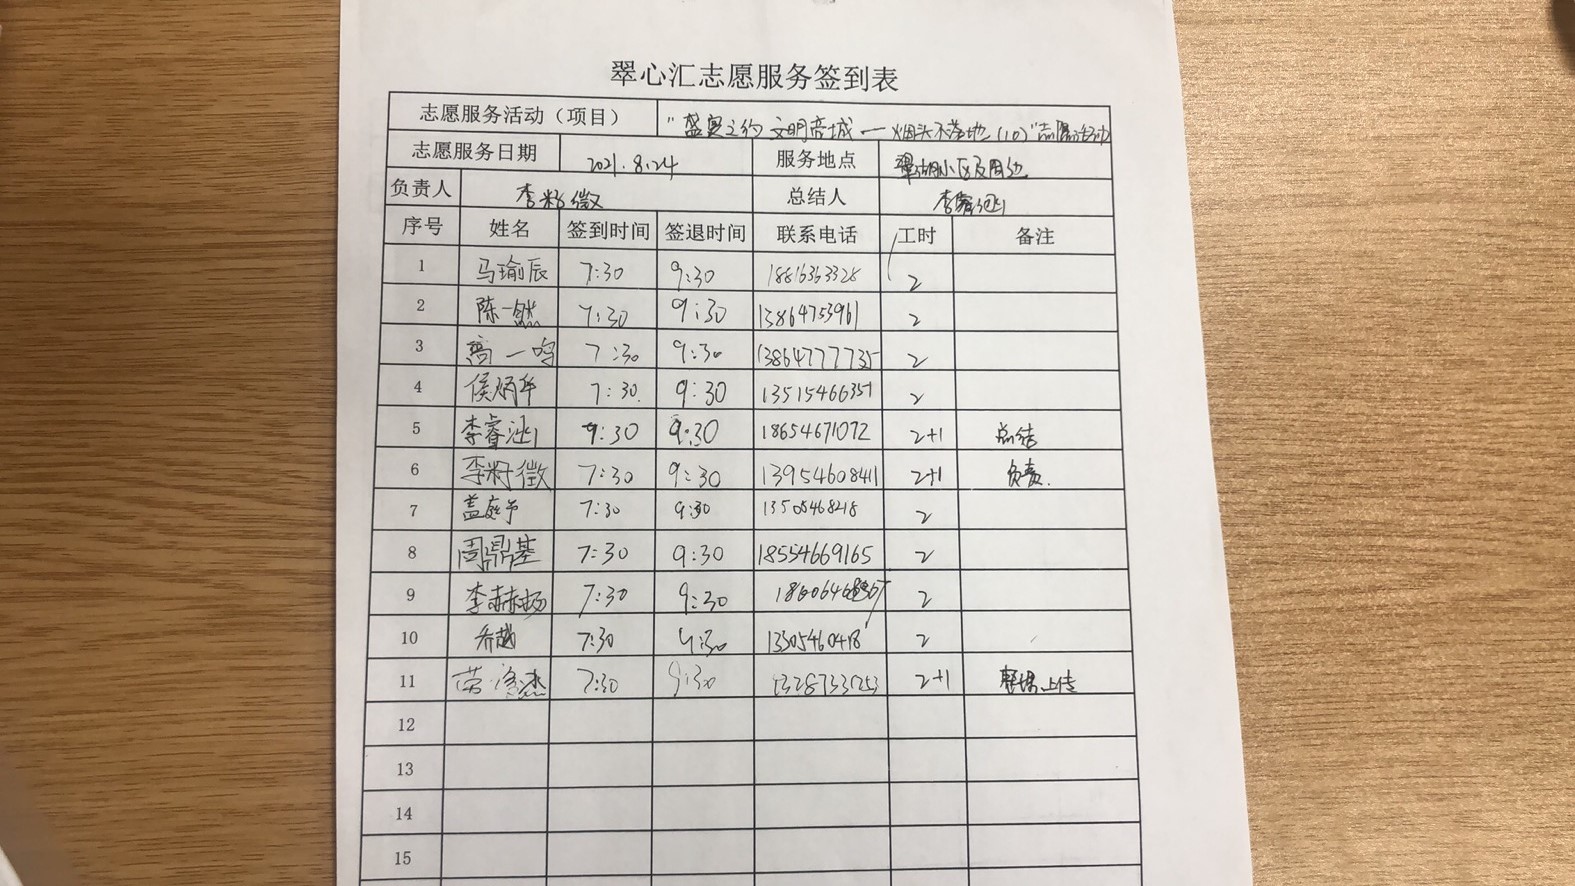 翠心汇志愿服务签到表
志愿服务活动（项目） "盛夏之约 文明帝城—烟头不落地（10）"志愿活动
志愿服务日期 2021.8.24 服务地点 翠湖小区及周边
负责人 李籽徵 总结人 李睿
序号 姓名 签到时间 签退时间 联系电话 工时 备注
1 马瑜辰 7:30 9:30 18816363328 2
2 陈一然 7:30 9:30 13864753961 2
3 高一鸣 7:30 9:30 13864777735 2
4 侯炳华 7:30 9:30 13515466351 2
5 李睿 9:30 9:30 18654671072 2+1 总结
6 李籽徵 7:30 9:30 13954608411 2+1 负责.
7 盖庭予 7:30 9:30 13505468218 2
8 周鼎基 7:30 9:30 18554669165 2
9 李赫扬 7:30 9:30 2
10 乔越 7:30 9:30 13305460418 2
11 7:30 9:30 2+1 上传
12
13
14
15